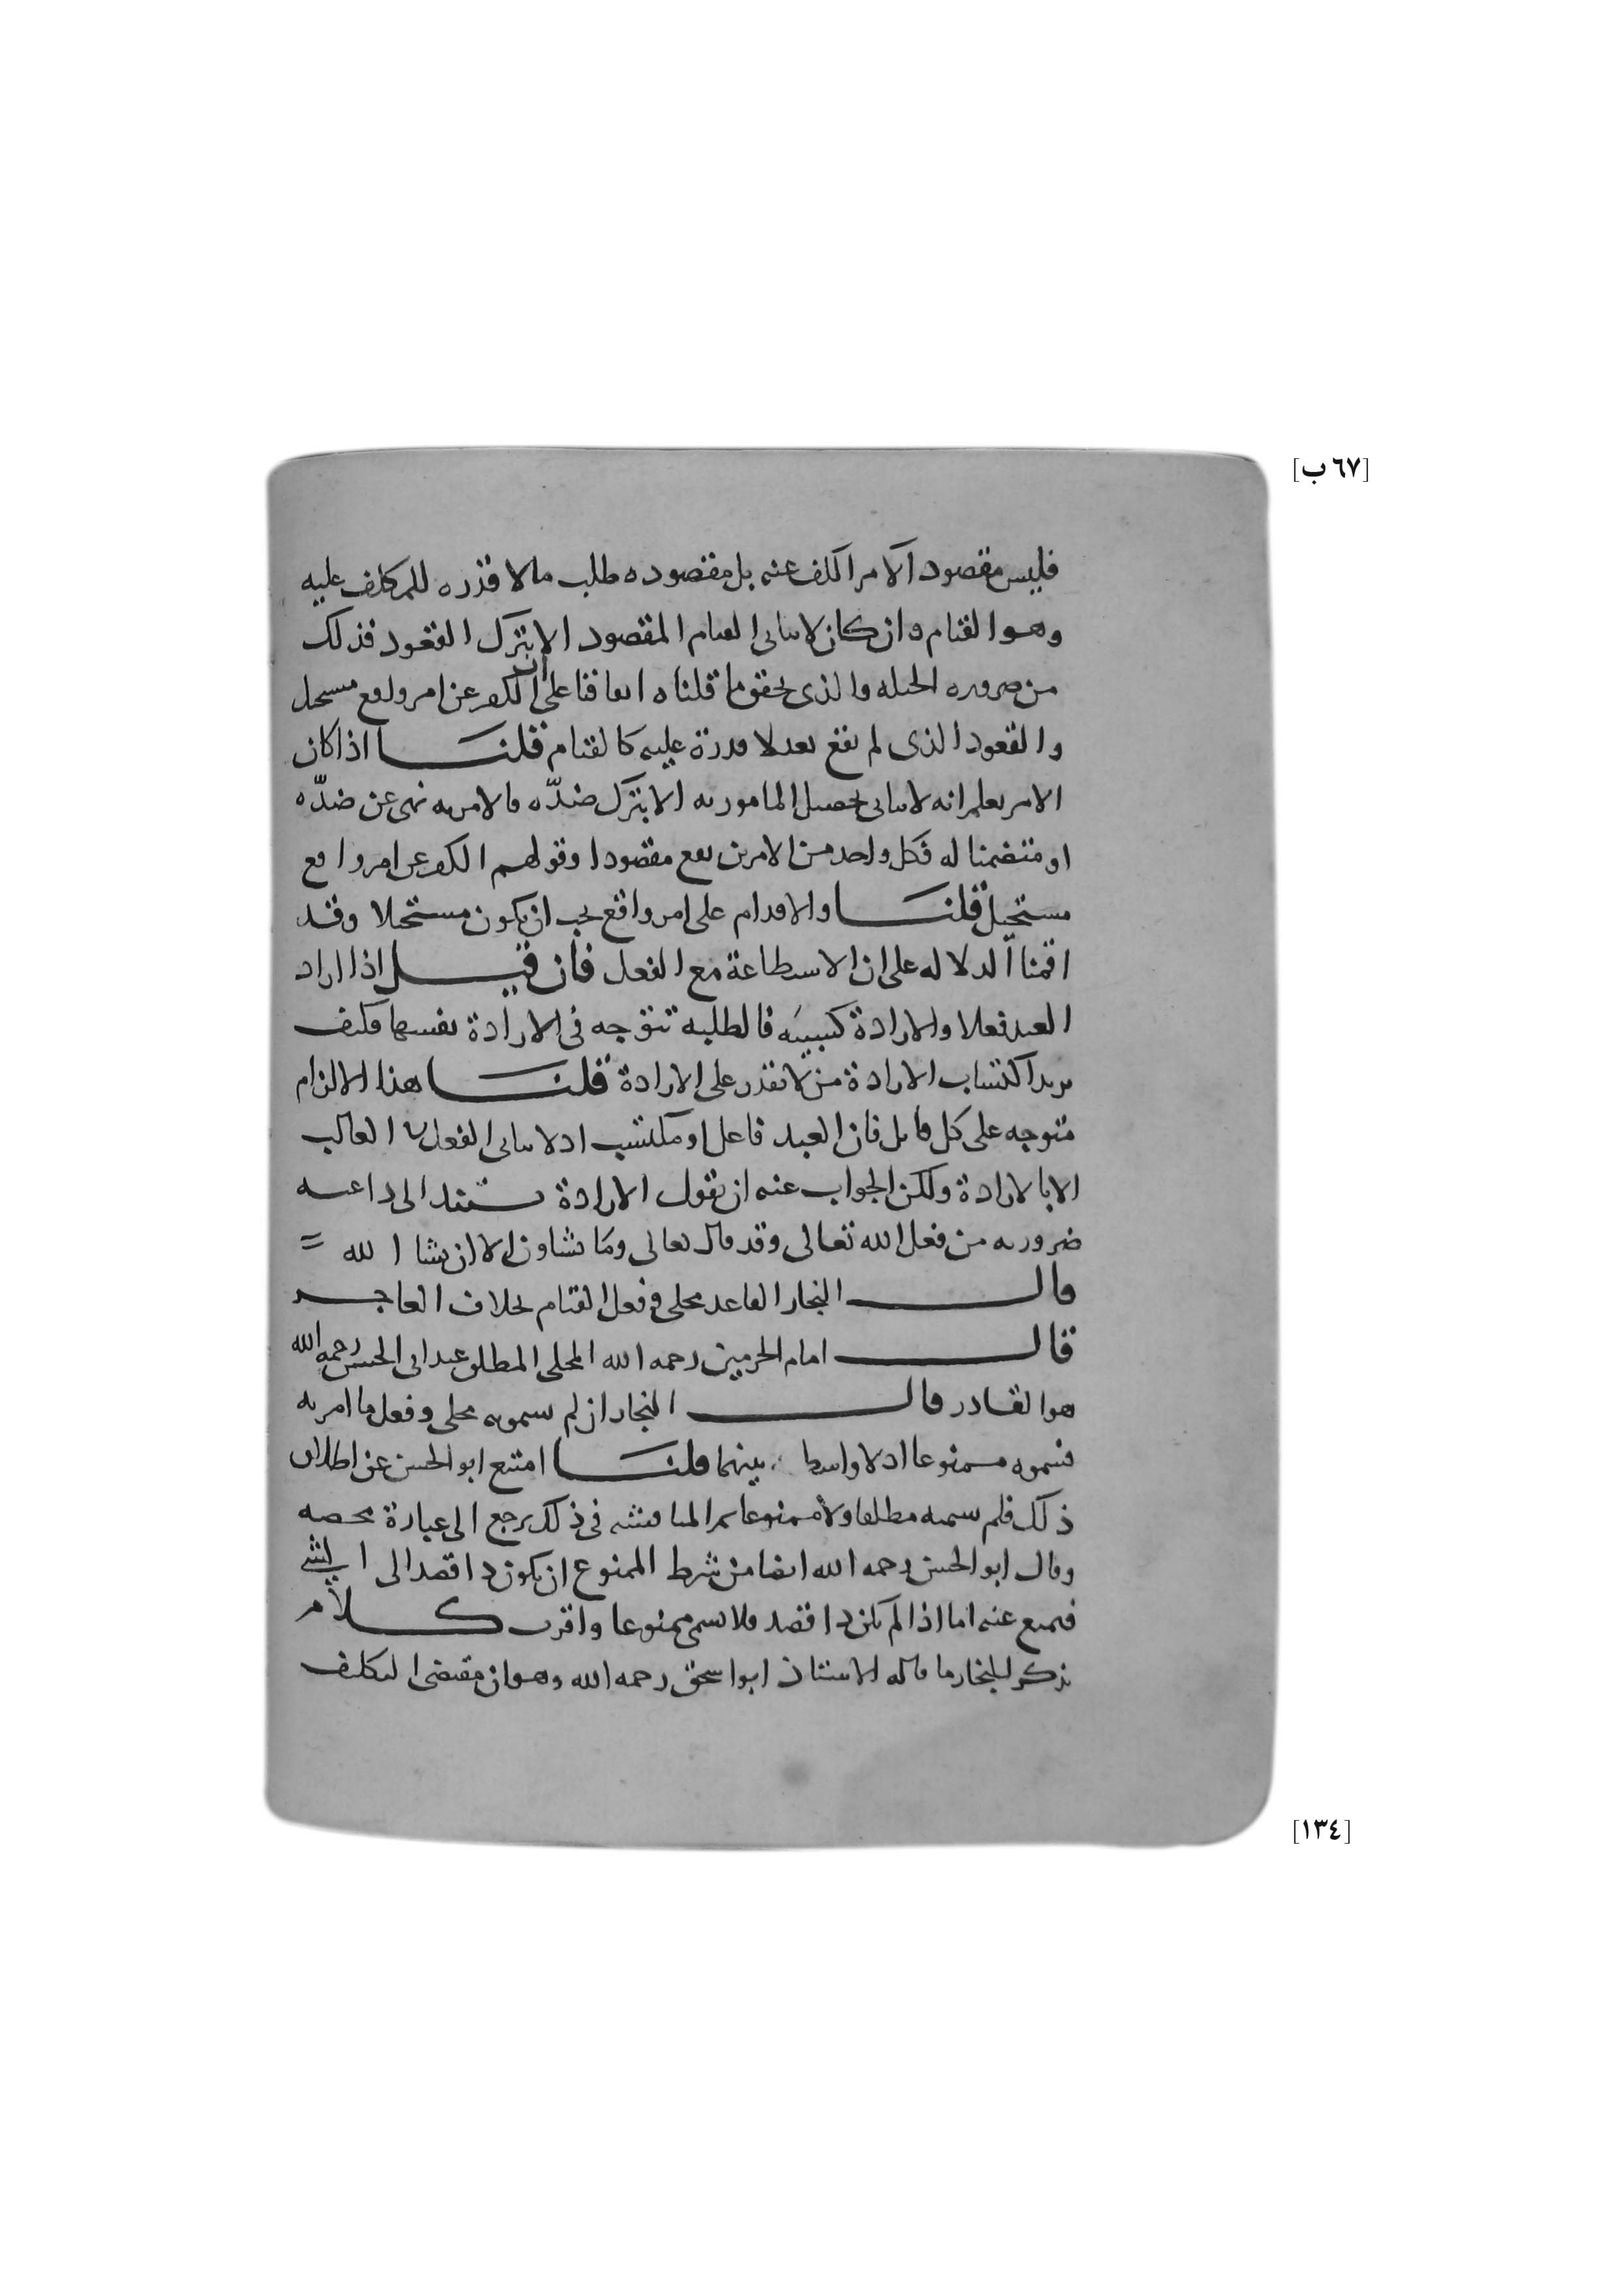 [٦٧ ب]
فليس مقصود الامر الكف عنه بل مقصوده طلب ما لا قدره للمكلف عليه
وهو القيام وان كان لا يتاتى القيام المقصود الا بترك القعود فذلك
من ضروره الجبله والذى يحقق ما قلناه اتفاقنا على ان الكف عن امر واقع مستحيل
والقعود الذى لم يقع بعد لا قدرة عليه كالقيام قلنا اذا كان
الامر يعلم انه لا يتاتى تحصيل المامور به الا بترك ضدّه فالامر به نهى عن ضدّه
او متضمنا له فكل واحد من الامرين يقع مقصودا وقولهم الكف عن امر واقع
مستحيل قلنا والاقدام على امر واقع يجب ان يكون مستحيلا وقد
اقمنا الدلاله على ان الاستطاعة مع الفعل فان قيل اذا اراد
العبد فعلا والارادة كسبيه فالطلبه تتوجه فى الارادة نفسها فكيف
يريد اكتساب الارادة من لا يقدر على الارادة قلنا هذا الالزام
متوجه على كل قايل فان العبد فاعل او مكتسب اذ لا يتاتى الفعل فى الغالب
الا بالارادة ولكن الجواب عنه ان نقول الارادة تستند الى داعيه
ضروريه من فعل الله تعالى وقد قال تعالى وما تشاون الا ان يشا الله
قال النجار القاعد مخلى وفعل القيام بخلاف العاجز
قال امام الحرمين رحمه الله المخلى المطلق عند ابى الحسن رحمه الله
هو القادر قال النجار ان لم تسموه مخلى وفعل ما امر به
فسموه ممنوعا اذ لا واسطة بينهما قلنا امتنع ابو الحسن عن اطلاق
ذلك فلم يسمه مطلقا ولا ممنوعا ثم المناقشه فى ذلك يرجع الى عبارة محضه
وقال ابو الحسن رحمه الله ايضا من شرط الممنوع ان يكون ذا قصد الى الشى
فيمنع عنه اما اذا لم يكن ذا قصد فلا يسمى ممنوعا واقرب كلام
يذكر للنجار ما قاله الاستاذ ابو اسحق رحمه الله وهو ان مقتضى التكليف
[١٣٤]